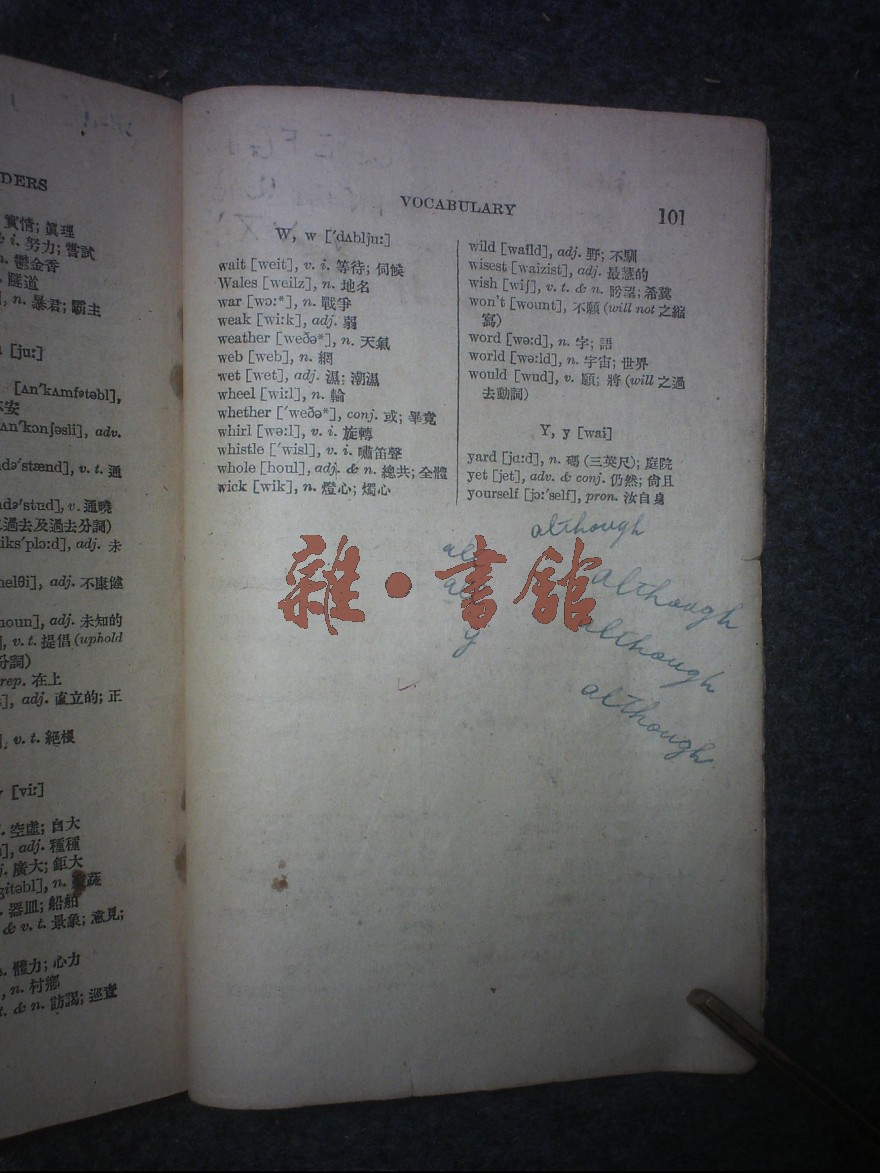 DERS
實情; 眞理
& i. 努力; 嘗試
n. 鬱金香
隧道
], n. 暴君; 霸主
[ju:]
[ʌn'kʌmfətəbl],
不安
ʌn'kɔnʃəsli], adv.
ndə'stænd], v. t. 通
ndə'stud], v. 通曉
之過去及過去分詞)
iks'plɔ:d], adj. 未
helθi], adj. 不康健
noun], adj. 未知的
], v. t. 提倡 (uphold
分詞)
rep. 在上
], adj. 直立的; 正
], v. t. 絕根
[vi:]
空虛; 自大
], adj. 種種
j. 廣大; 鉅大
gitəbl], n. 蔬
器皿; 船舶
& v. t. 景象; 意見;
體力; 心力
, n. 村鄉
t. & n. 訪謁; 巡查
VOCABULARY
101
W, w ['dʌblju:]
wait [weit], v. i. 等待; 伺候
Wales [weilz], n. 地名
war [wɔ:*], n. 戰爭
weak [wi:k], adj. 弱
weather [weðə*], n. 天氣
web [web], n. 網
wet [wet], adj. 濕; 潮濕
wheel [wi:l], n. 輪
whether ['weðə*], conj. 或; 畢竟
whirl [wə:l], v. i. 旋轉
whistle ['wisl], v. i. 嘯笛聲
whole [houl], adj. & n. 總共; 全體
wick [wik], n. 燈心; 燭心
wild [waild], adj. 野; 不馴
wisest [waizist], adj. 最慧的
wish [wiʃ], v. t. & n. 盼望; 希冀
won't [wount], 不願 (will not 之縮
寫)
word [wə:d], n. 字; 語
world [wə:ld], n. 宇宙; 世界
would [wud], v. 願; 將 (will 之過
去動詞)
Y, y [wai]
yard [jɑ:d], n. 碼 (三英尺); 庭院
yet [jet], adv. & conj. 仍然; 尙且
yourself [jɔ:'self], pron. 汝自身
although
although
although
although
雜·書館